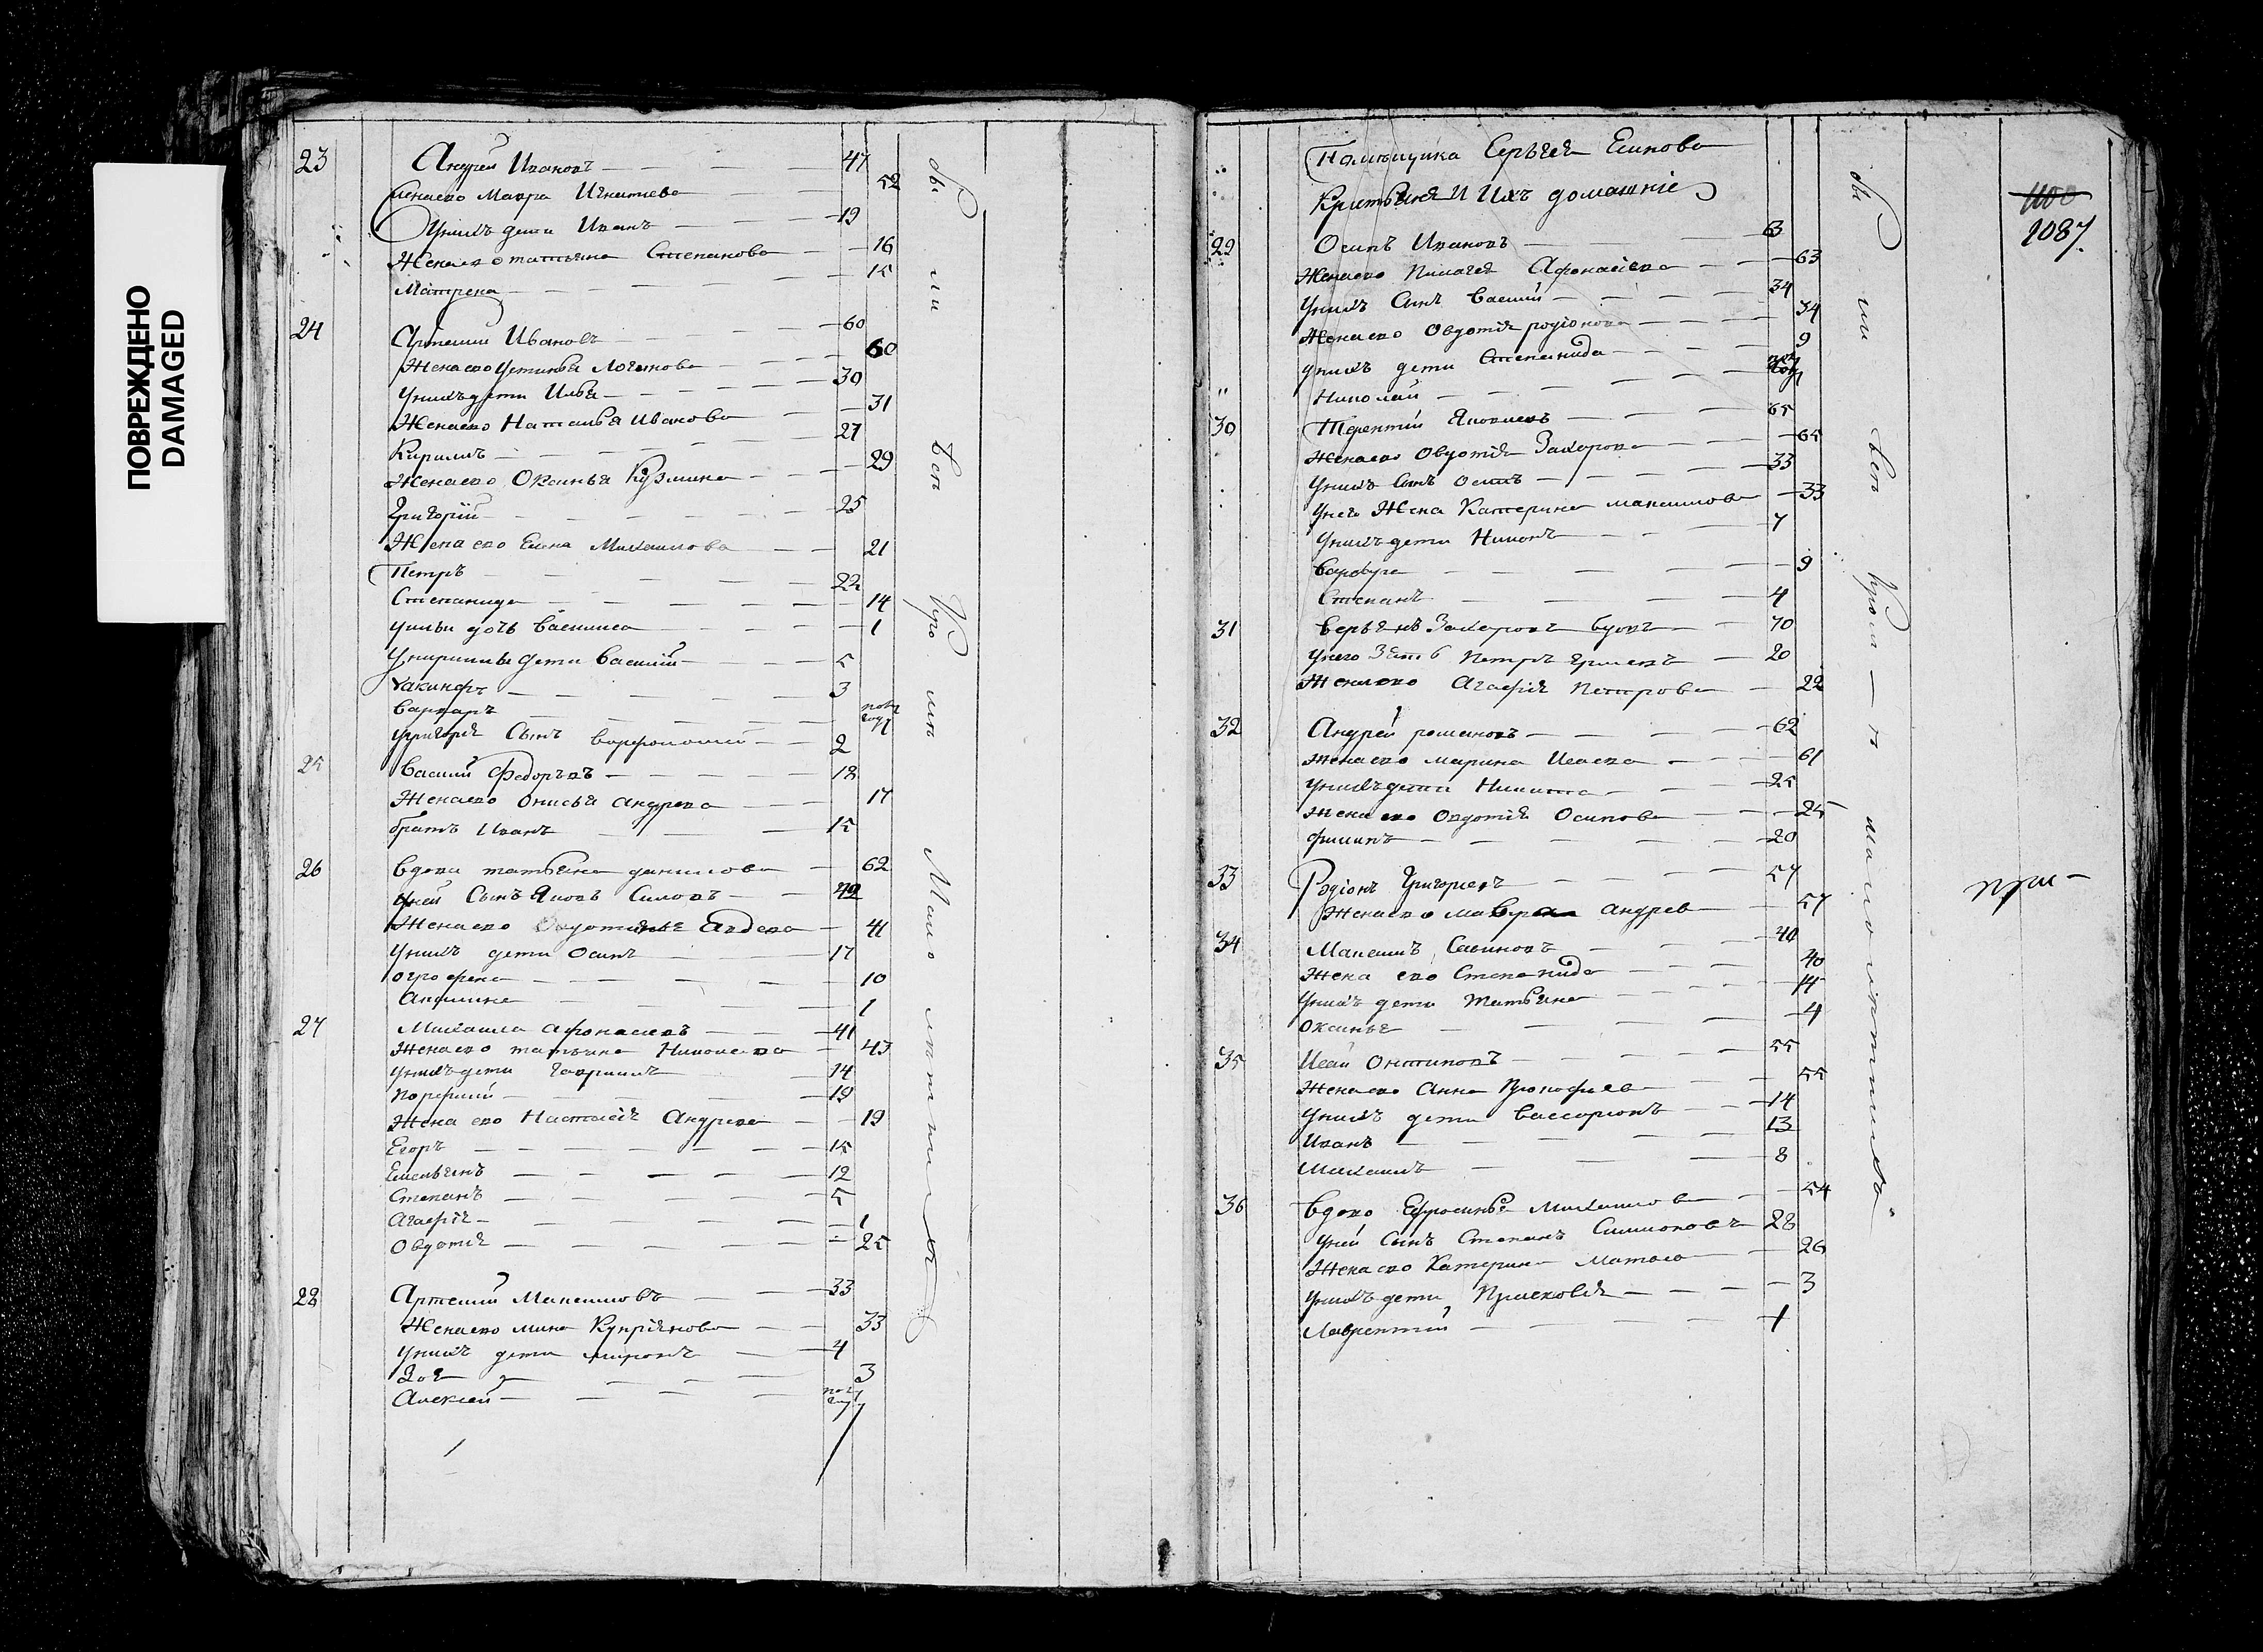 ПОВРЕЖДЕНО
DAMAGED
23 Андрей Ивановъ 47
Женаево Мавра Игнатева 52
Унихъ дети Иванъ 19
Женаево татьяна Степанова 16
Матрена 15
24 Артемий Ивановъ 60
Женаево Устинья Логинова 60
Унихъ дети Илья 30
Женаево Наталья Иванова 31
Кирилъ 27
Женаево Оксинья Кузмина 29
Григорий 25
Женаево Елена Михаилова 21
Петръ 22
Степанида 14
Уильи дочь Василиса 1
Укирилы дети Василий 5
Иакинфъ 3
Варвара полу году
Угригоря Сынъ Варфоломей 2
25 Василий Федоровъ 18
Женаево Онисья андрева 17
братъ Иванъ 15
26 Вдова татьяна данилова 62
Уней Сынъ Яковъ Силовъ 42
Женаево Овдотья Авдева 41
Унихъ дети Осипъ 17
огрофена 10
Акулина 1
27 Михаила афонасьевъ 41
Женаево татьяна Николаева 43
Унихъ дети Гаврилъ 14
порфирий 19
Жена ево Настасия Андрева 19
Егоръ 15
Емельянъ 12
Степанъ 5
Агафия 1
Овдотя 25
28 Артемий Максимовъ 33
Женаево Куприянова 33
Унихъ дети миронъ 4
Зоя 3
Алексей полу году
Помещика Сергея
Крестьяня И Ихъ домашние
1100
1087
29 Осипъ Ивановъ 63
Женаево Пилагея Афонасева 63
Унихъ Сынъ Василий 34
Женаево Овдотия родионова 34
Унихъ дети Степанида 9
Николай полу году
30 Терентий Яковлевъ 65
Женаево Овдотия Захарова 65
Унихъ Сынъ Осипъ 33
Унего Жена Катерина максимова 33
Унихъ дети Никонъ 7
Варвара 9
Степанъ 4
31 Захаровъ 70
Унего Зять Петръ 20
Женаево Агафия Петрова 22
32 Андрей романовъ 62
Женаево марина Исаева 61
Унихъ дети Никита 25
Женаево Овдотия Осипова 25
филипъ 20
33 Родионъ Григорьевъ 57
Женаево мавра андрев 57
34 Максимъ Савиновъ 40
Жена ево Степанида 40
Унихъ дети татьяна 14
Оксинья 4
35 Исай Онтиповъ 55
Женаево Анна Прокофьева 55
Унихъ дети Вассарионъ 14
Иванъ 13
Михаилъ 8
36 Вдова Ефросинья Михаилова 54
Уней Сынъ Степанъ Симионовъ 28
Женаево Катерина 26
Унихъ дети Прасковия 3
Лаврентий 1